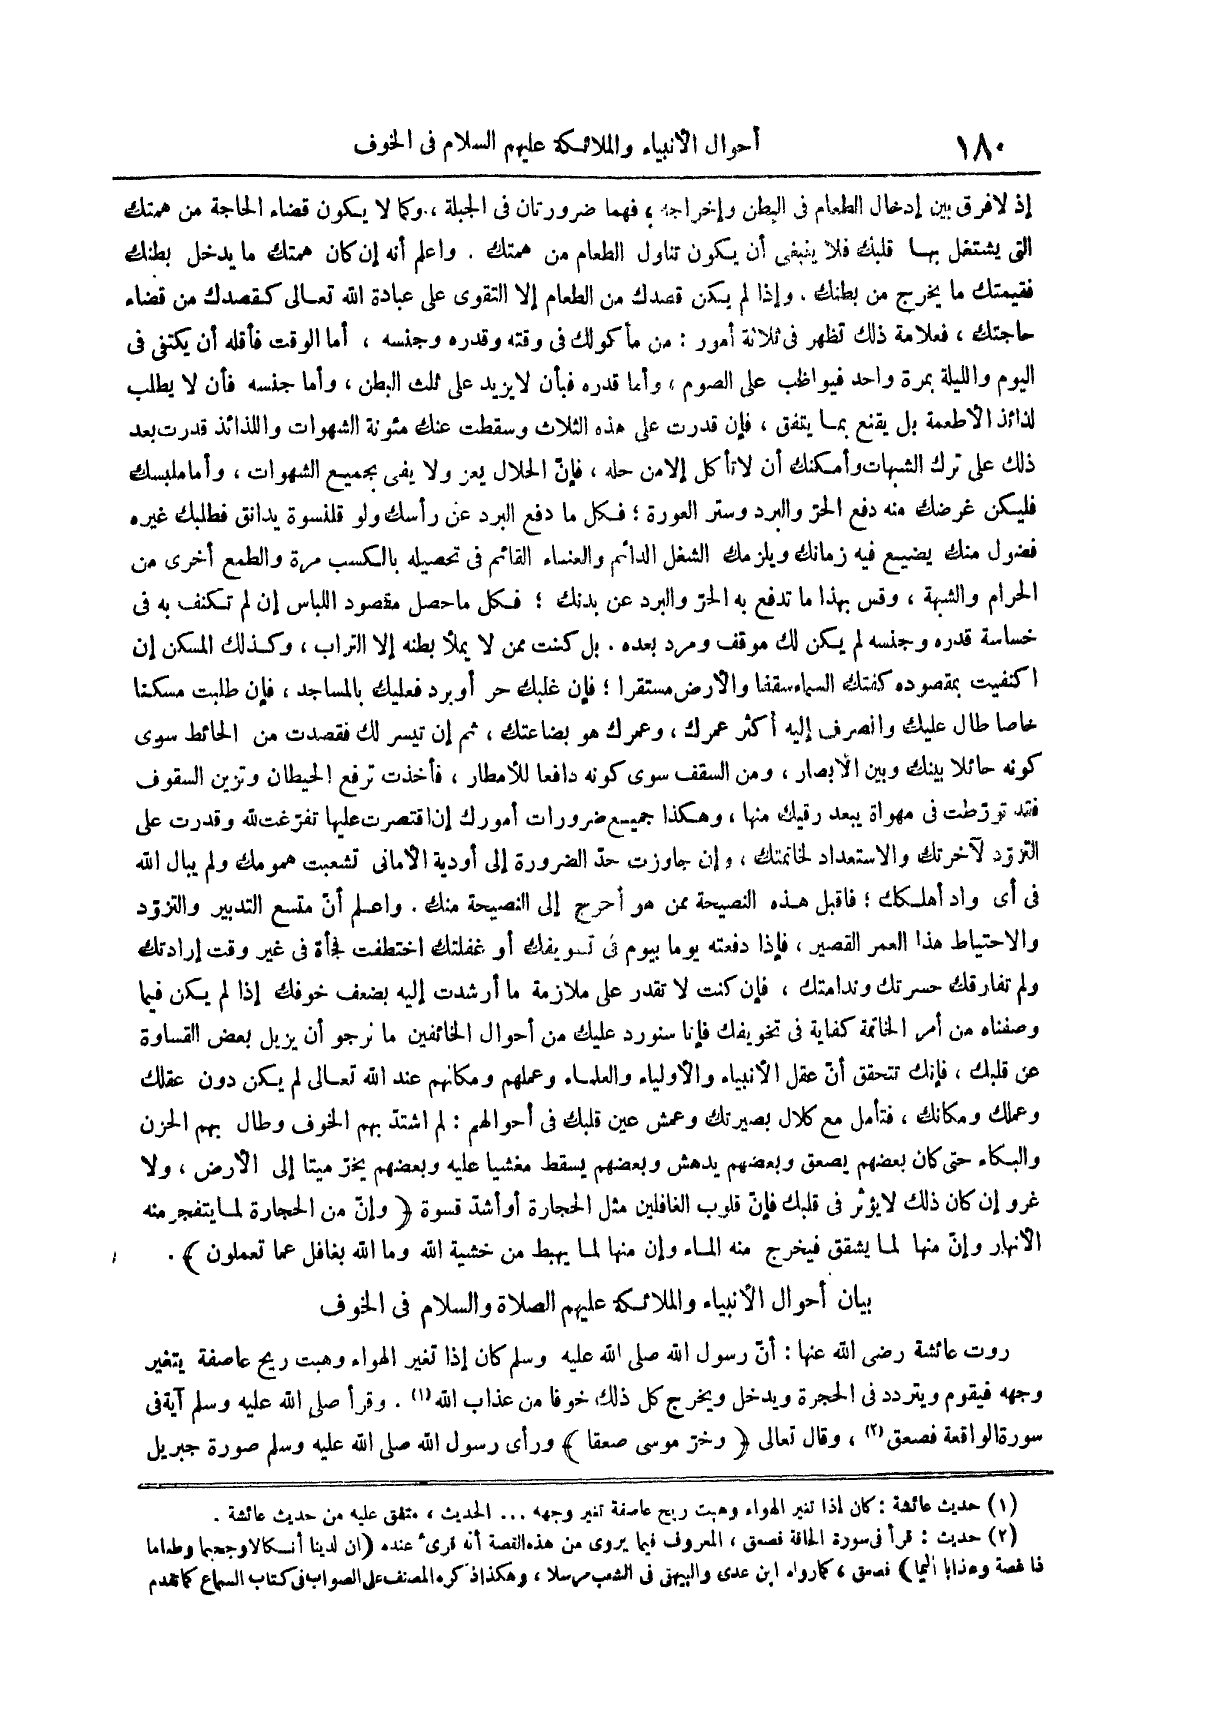 ١٨٠ أحوال الأنبياء والملائكة عليهم السلام فى الخوف
إذ لافرق بين إدخال الطعام فى البطن وإخراجه ، فهما ضرورتان فى الجبلة ، وكما لا يكون قضاء الحاجة من همتك
التى يشتغل بها قلبك فلا ينبغى أن يكون تناول الطعام من همتك . واعلم أنه إن كان همتك ما يدخل بطنك
فقيمتك ما يخرج من بطنك . وإذا لم يكن قصدك من الطعام إلا التقوى على عبادة الله تعالى كقصدك من قضاء
حاجتك ، فعلامة ذلك تظهر فى ثلاثة أمور : من مأكولك فى وقته وقدره وجنسه ، أما الوقت فأقله أن يكتفى فى
اليوم والليلة بمرة واحد فيواظب على الصوم ، وأما قدره فبأن لايزيد على ثلث البطن ، وأما جنسه فأن لا يطلب
لذائذ الأطعمة بل يقنع بما يتفق ، فإن قدرت على هذه الثلاث وسقطت عنك مئونة الشهوات واللذائذ قدرت بعد
ذلك على ترك الشبهات وأمكنك أن لاتأكل إلامن حله ، فإنّ الحلال يعز ولا يفى بجميع الشهوات ، وأما ملبسك
فليكن غرضك منه دفع الحرّ والبرد وستر العورة ؛ فكل ما دفع البرد عن رأسك ولو قلنسوة بدانق فطلبك غيره
فضول منك يضيع فيه زمانك ويلزمك الشغل الدائم والعناء القائم فى تحصيله بالكسب مرة والطمع أخرى من
الحرام والشبهة ، وقس بهذا ما تدفع به الحرّ والبرد عن بدنك ؛ فكل ماحصل مقصود اللباس إن لم تكتف به فى
خساسة قدره وجنسه لم يكن لك موقف ومرد بعده . بل كنت ممن لا يملأ بطنه إلا التراب ، وكذلك المسكن إن
اكتفيت بمقصوده كفتك السماء سقفا والأرض مستقرا ؛ فإن غلبك حر أو برد فعليك بالمساجد ، فإن طلبت مسكنا
خاصا طال عليك وانصرف إليه أكثر عمرك ، وعمرك هو بضاعتك ، ثم إن تيسر لك فقصدت من الحائط سوى
كونه حائلا بينك وبين الأبصار ، ومن السقف سوى كونه دافعا للأمطار ، فأخذت ترفع الحيطان وتزين السقوف
فقد تورّطت فى مهواة يبعد رقيك منها ، وهكذا جميع ضرورات أمورك إن اقتصرت عليها تفرّغت لله وقدرت على
التزوّد لآخرتك والاستعداد لخاتمتك ، وإن جاوزت حدّ الضرورة إلى أودية الأمانى تشعبت همومك ولم يبال الله
فى أى واد أهلكك ؛ فاقبل هذه النصيحة ممن هو أحرج إلى النصيحة منك . واعلم أنّ متسع التدبير والتزوّد
والاحتياط هذا العمر القصير ، فإذا دفعته يوما بيوم فى تسويفك أو غفلتك اختطفت فجأة فى غير وقت إرادتك
ولم تفارقك حسرتك وندامتك ، فإن كنت لا تقدر على ملازمة ما أرشدت إليه بضعف خوفك إذا لم يكن فيما
وصفناه من أمر الخاتمة كفاية فى تخويفك فإنا سنورد عليك من أحوال الخائفين ما نرجو أن يزيل بعض القساوة
عن قلبك ، فإنك تتحقق أنّ عقل الأنبياء والأولياء والعلماء وعملهم ومكانهم عند الله تعالى لم يكن دون عقلك
وعملك ومكانك ، فتأمل مع كلال بصيرتك وعمش عين قلبك فى أحوالهم : لم اشتدّ بهم الخوف وطال بهم الحزن
والبكاء حتى كان بعضهم يصعق وبعضهم يدهش وبعضهم يسقط مغشيا عليه وبعضهم يخرّ ميتا إلى الأرض ، ولا
غرو إن كان ذلك لايؤثر فى قلبك فإنّ قلوب الغافلين مثل الحجارة أو أشدّ قسوة ﴿ وإنّ من الحجارة لما يتفجر منه
الأنهار وإنّ منها لما يشقق فيخرج منه الماء وإن منها لما يهبط من خشية الله وما الله بغافل عما تعملون ﴾ .
بيان أحوال الأنبياء والملائكة عليهم الصلاة والسلام فى الخوف
روت عائشة رضى الله عنها : أنّ رسول الله صلى الله عليه وسلم كان إذا تغير الهواء وهبت ريح عاصفة يتغير
وجهه فيقوم ويتردد فى الحجرة ويدخل ويخرج كل ذلك خوفا من عذاب الله (١) . وقرأ صلى الله عليه وسلم آية فى
سورة الواقعة فصعق (٢) ، وقال تعالى ﴿ وخرّ موسى صعقا ﴾ ورأى رسول الله صلى الله عليه وسلم صورة جبريل
(١) حديث عائشة : كان إذا تغير الهواء وهبت ريح عاصفة تغير وجهه ... الحديث ، متفق عليه من حديث عائشة .
(٢) حديث : قرأ فى سورة الحاقة فصعق ، المعروف فيما يروى من هذه القصة أنه قرئ عنده ﴿ان لدينا أنكالا وجحيما وطعاما
ذا غصة وعذابا أليما﴾ فصعق ، كما رواه ابن عدى والبيهقى فى الشعب مرسلا ، وهكذا ذكره المصنف على الصواب فى كتاب السماع كما تقدم